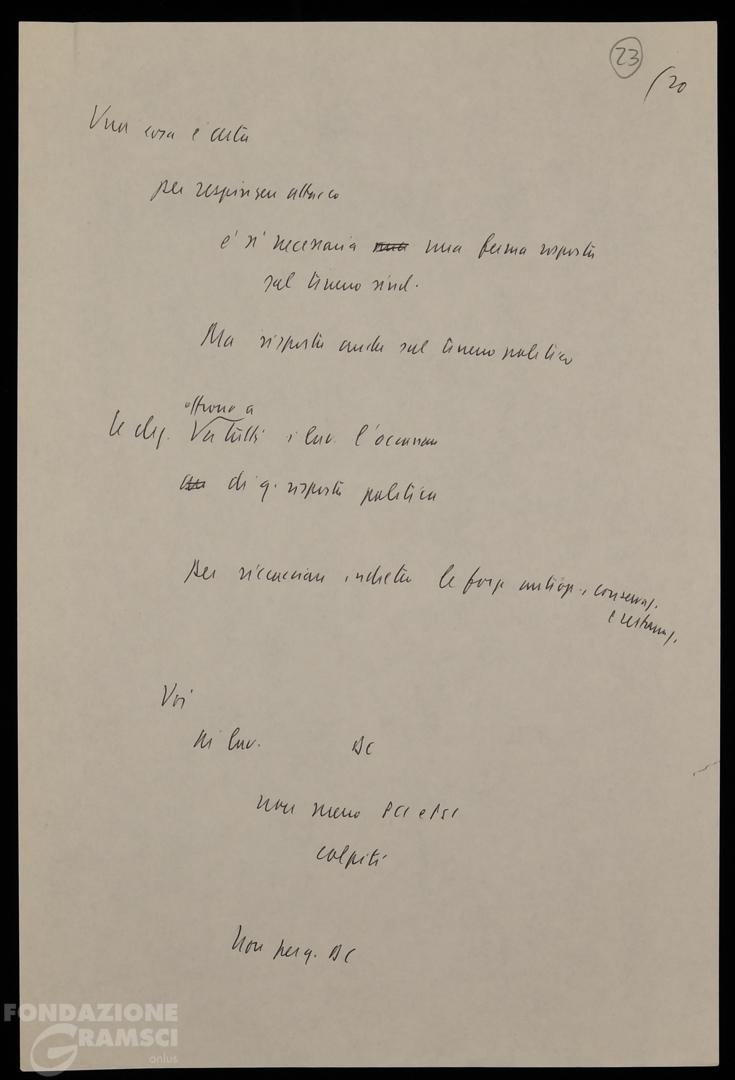 23
/20
Una cosa è certa
per respingere attacco
e' si' necessaria una ferma risposta
sul terreno sind.
Ma risposta anche sul terreno politico
offrono a
le elez. tutti i lav. l'occasione
di q. risposta politica
per ricacciare indietro le forze antiop. conserv.
e restauraz.
Voi
ai lav. DC
non meno PCI e PSI
colpiti
Non per q. DC
FONDAZIONE
GRAMSCI
onlus